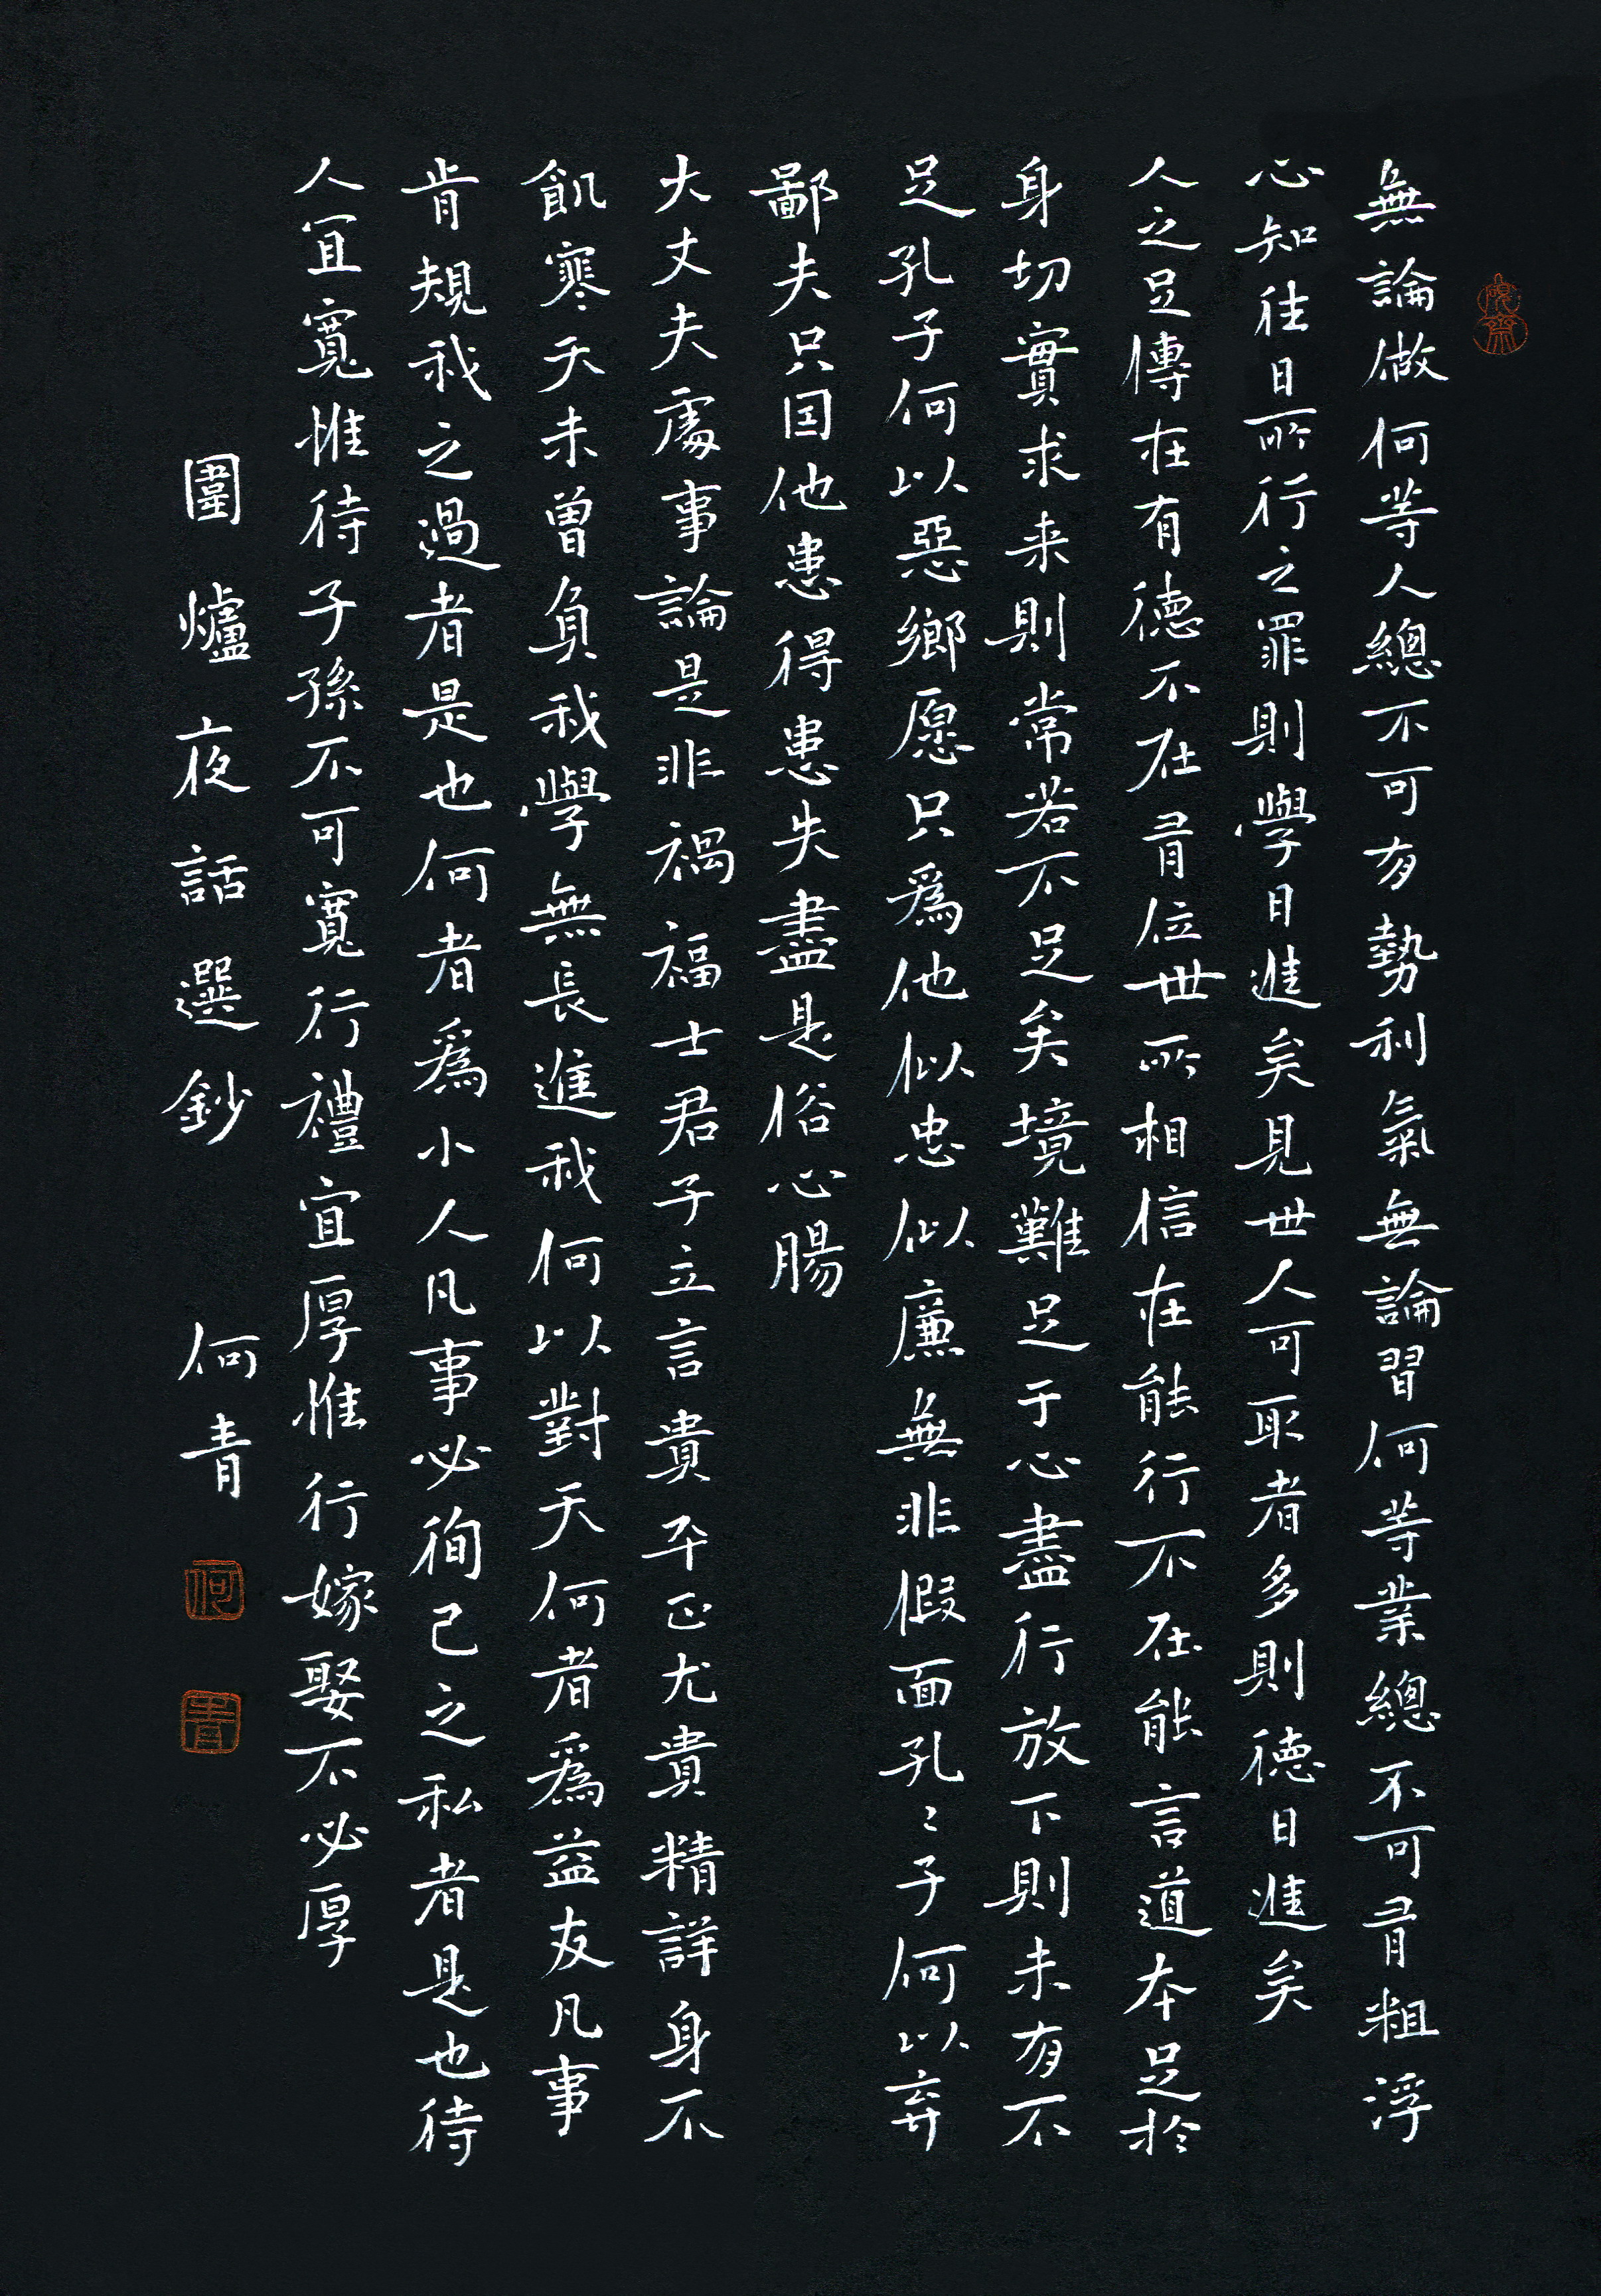 無論做何等人總不可有勢利氣無論習何等業總不可有粗浮
心知往日所行之罪則學日進矣見世人可取者多則德日進矣
人之足傳在有德不在有位世所相信在能行不在能言道本足於
身切實求来則常若不足矣境難足于心盡行放下則未有不
足孔子何以惡鄉愿只爲他似忠似廉無非假面孔〻子何以弃
鄙夫只因他患得患失盡是俗心腸
大丈夫處事論是非禍福士君子立言貴平正尤貴精詳身不
飢寒天未曾負我學無長進我何以對天何者爲益友凡事
肯規我之過者是也何者爲小人凡事必徇己之私者是也待
人宜寬惟待子孫不可寬行禮宜厚惟行嫁娶不必厚
圍爐夜話選鈔 何青
何
青